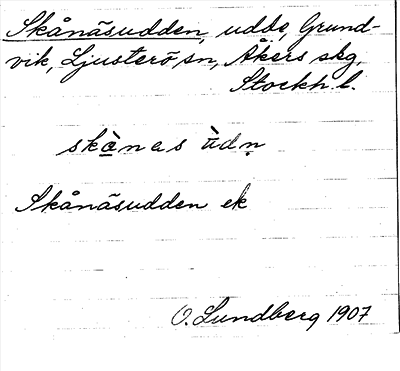 Skånäsudden, udde, Grund-
vik, Ljusterö sn, Åkers skg,
Stockh. l.
skà̱nas ù̄dṇ
Skånäsudden ek
O. Lundberg 1907